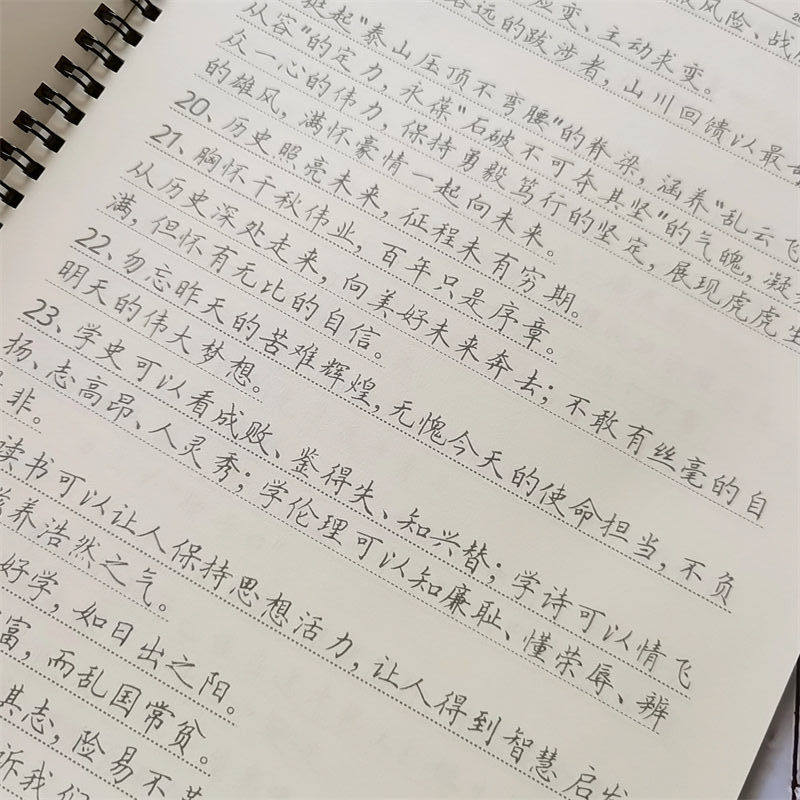 应变、主动求变。
的跋涉者，山川回馈以最
挺起“泰山压顶不弯腰”的脊梁，涵养“乱云飞
从容”的定力，永葆“石破不可夺其坚”的气魄，凝
众一心的伟力，保持勇毅笃行的坚定，展现虎虎生
的雄风，满怀豪情一起向未来。
20、历史照亮未来，征程未有穷期。
21、胸怀千秋伟业，百年只是序章。
从历史深处走来，向美好未来奔去；不敢有丝毫的自
满，但怀有无比的自信。
22、勿忘昨天的苦难辉煌，无愧今天的使命担当，不负
明天的伟大梦想。
23、学史可以看成败、鉴得失、知兴替；学诗可以情飞
扬、志高昂、人灵秀；学伦理可以知廉耻、懂荣辱、辨
非。
读书可以让人保持思想活力，让人得到智慧启发
养浩然之气。
好学，如日出之阳。
富，而乱国常贫。
其志，险易不
诉我们